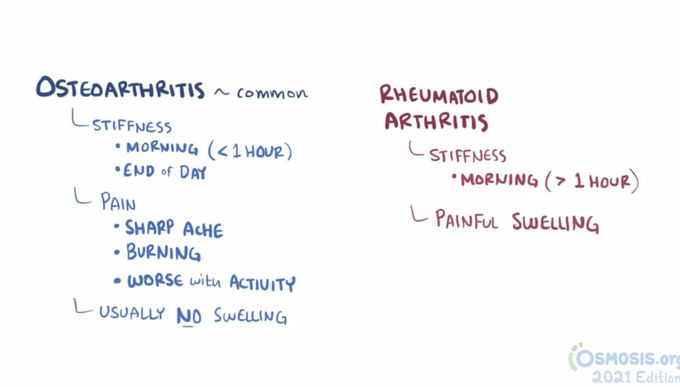 OSTEOARTHRITIS ~ common
STIFFNESS
• MORNING (< 1 HOUR)
• END OF DAY
PAIN
• SHARP ACHE
• BURNING
• WORSE with ACTIVITY
USUALLY NO SWELLING
RHEUMATOID
ARTHRITIS
STIFFNESS
• MORNING (> 1 HOUR)
PAINFUL SWELLING
OSMOSIS.org
2021 Edition